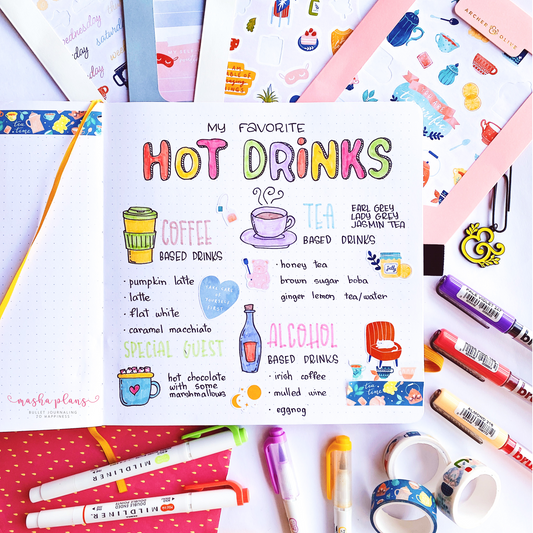 ARCHER & OLIVE
MY FAVORITE
HOT DRINKS
COFFEE
BASED DRINKS
• pumpkin latte
• latte
• flat white
• caramel macchiato
TEA
BASED DRINKS
EARL GREY
LADY GREY
JASMIN TEA
• honey tea
brown sugar boba
ginger lemon tea/water
TAKE CARE
OF
YOURSELF
FIRST
SPECIAL GUEST
hot chocolate
with some
marshmallows
ALCOHOL
BASED DRINKS
• irish coffee
• mulled wine
• eggnog
tea
time
masha plans
BULLET JOURNALING
TO HAPPINESS
MILDLINER
MILDLINER